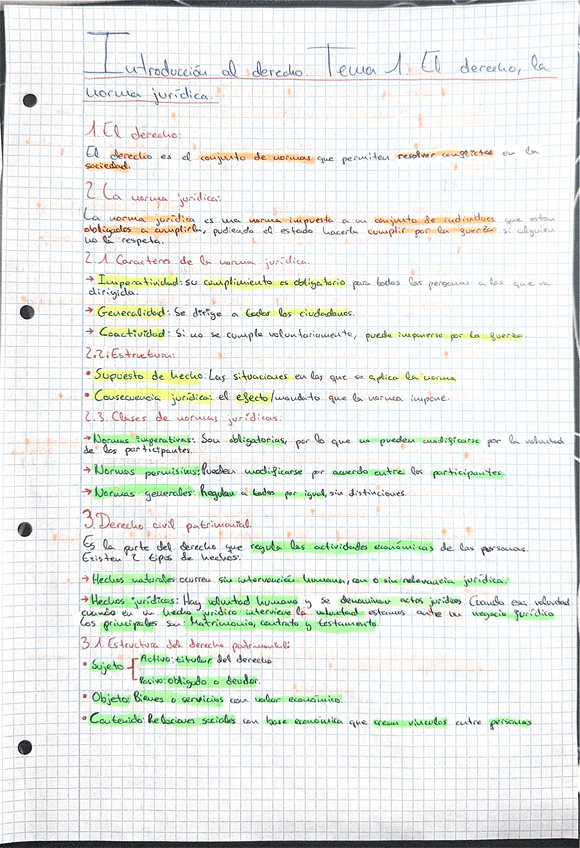 Introducción al derecho. Tema 1. El derecho, la
norma jurídica.
1. El derecho:
El derecho es el conjunto de normas que permiten resolver conflictos en la
sociedad.
2. La norma jurídica:
La norma jurídica es una norma impuesta a un conjunto de individuos que estan
obligados a cumplirla, pudiendo el estado hacerla cumplir por la fuerza si alguien
no la respeta.
2.1. Caracteres de la norma jurídica.
→ Imperatividad: su cumplimiento es obligatorio para todas las personas a las que va
dirigida.
→ Generalidad: Se dirige a todos los ciudadanos.
→ Coactividad: Si no se cumple voluntariamente, puede imponerse por la fuerza.
2.2. Estructura:
• Supuesto de hecho: Las situaciones en las que se aplica la norma
• Consecuencia jurídica: el efecto/mandato que la norma impone.
2.3. Clases de normas jurídicas:
→ Normas imperativas: Son obligatorias, por lo que no pueden modificarse por la voluntad
de los participantes.
→ Normas permisivas: Pueden modificarse por acuerdo entre los participantes
→ Normas generales: Regulan a todos por igual, sin distinciones.
3. Derecho civil patrimonial.
Es la parte del derecho que regula las actividades económicas de las personas.
Existen 2 tipos de hechos:
→ Hechos naturales: ocurren sin intervención humana, con o sin relevancia jurídica.
→ Hechos jurídicos: Hay voluntad humana y se denominan actos jurídicos Cuando esa voluntad
cuando en un hecho jurídico interviene la voluntad estamos ante un negocio jurídico
Los principales son: Matrimonio, contrato y testamento.
3.1. Estructura del derecho patrimonial:
• Sujeto { Activo: titular del derecho
Pasivo: obligado o deudor.
• Objeto: Bienes o servicios con valor económico.
• Contenido: Relaciones sociales con base económica que crean vínculos entre personas